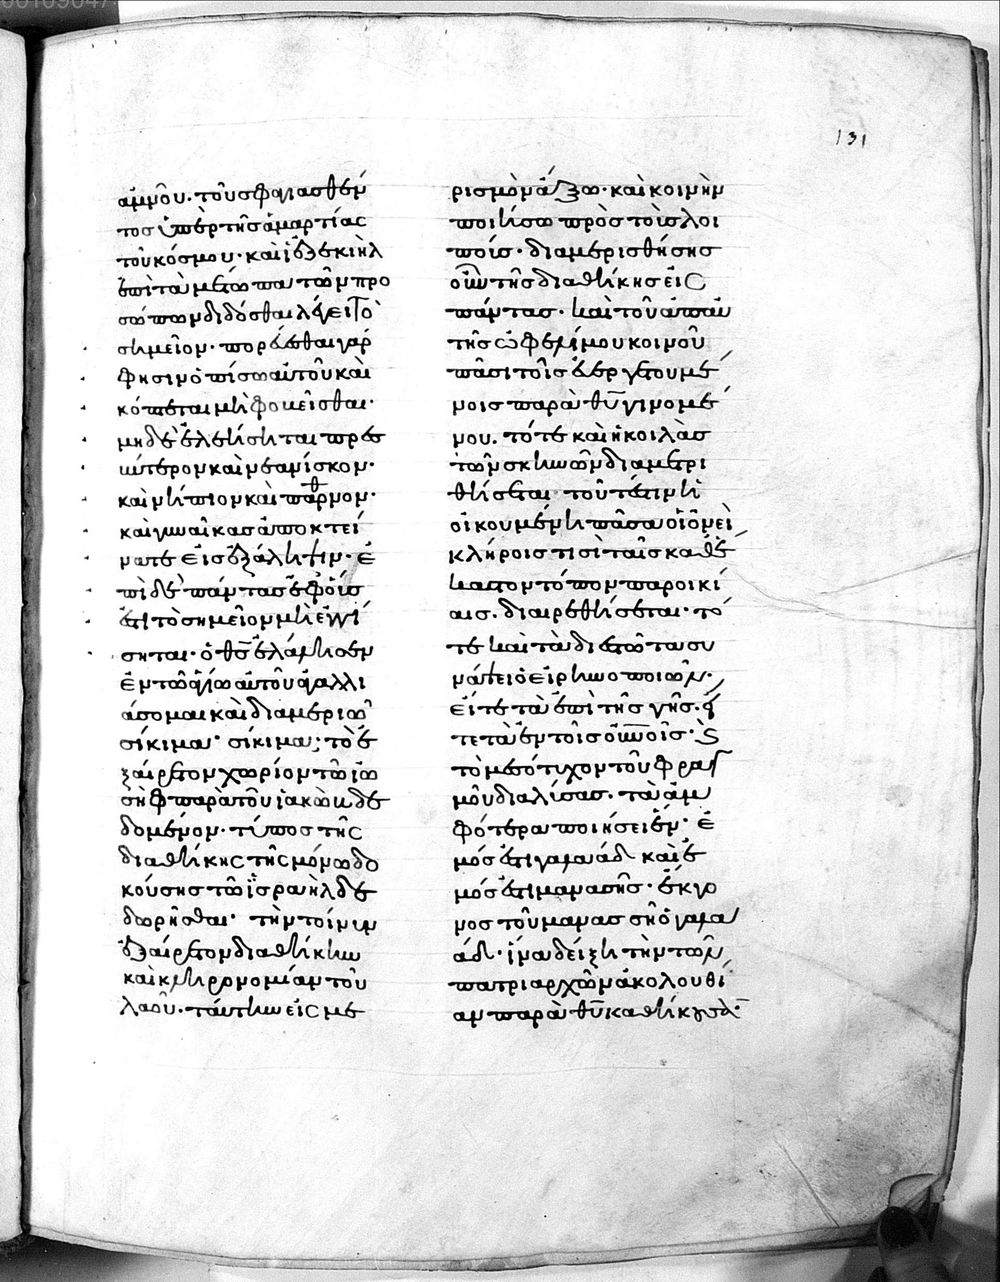 131
ἀμνοῦ. τοῦ σφαγιασθέν
τος ὑπὲρ τῆς ἁμαρτίας
τοῦ κόσμου· καὶ ἰεζεκιὴλ
ἐπὶ τὰ μετώπα τῶν προ
σώπων δίδοσθαι λέγει τὸ
σημεῖον· πορεύεσθαι γάρ
φησιν ὀπίσω αὐτοῦ καὶ
κόπτεται μὴ φοιμεῖσθαι·
μηδὲ ἐλεήσηται πρες
βύτερον καὶ νεανίσκον·
καὶ νήπιον καὶ παρθνον·
καὶ γυναῖκας ἀποκτεί
νατε εἰς ἐξάλειψιν· ἐ
πὶ δὲ πάντας ἐφ οἷς
ἐστι τὸ σημεῖον μὴ ἐγγί
σηται· ὁ θς ἐλάλησεν
ἐν τῶ ἁγίω αὐτοῦ ἀγαλλι
άσομαι καὶ διαμεριῶ
σίκιμα· σίκιμα; τὸ ἐ
ξαίρετον χωρίον τῶ ἰω
σὴφ παρὰ τοῦ ἰακὼβ δε
δομένον· τύπος τῆς
διαθήκης τῆς μόνω δο
κούσης τῶ ἰσραὴλ δε
δωρῆσθαι· τὴν τοίνυν
ἐξαίρετον διαθήκην
καὶ κληρονομίαν τοῦ
λαοῦ· ταύτην εἰς με
ρισμὸν ἄξω· καὶ κοινὴν
ποιήσω πρὸς τοὺς λοι
πούς· διαμερισθήσης
οὖν τῆς διαθήκης εἰς
πάντας· καὶ τοῦ ἁπαν
τῆς ὠφελίμου κοινοῦ
πᾶσι τοῖς εὐεργετουμέ
νοις παρὰ θῦ γινομέ
νου. τότε καὶ ἡ κοιλὰς
τῶν σκηνῶν διαμετρι
θήσεται· τουτέστιν ἡ
οἰκουμένη πᾶσα οἱονεὶ
κλήροις τισὶ ταῖς καθέ
καστον τόπον παροικί
αις. διαιρεθήσεται· τό
τε καὶ τὰ διεστῶτα συ
νάπτει ὁ εἰρηνοποιῶν·
εἴτε τὰ ἐπὶ τῆς γῆς· εἴ
τε τὰ ἐν τοῖς οὐνοῖς· καὶ
τὸ μεσότυχον τοῦ φραγ
μοῦ διαλύσας· τὰ ἀμ
φότερα ποιήσει ἕν· ἐ
μός ἐστι γαλαάδ καὶ ἐ
μός ἐστι μανασῆς· ἔκγο
νος τοῦ μανασσῆ ὁ γαλα
άδ· ἵνα δείξη τὴν τῶν
πατριαρχῶν ἀκολουθί
αν παρὰ θῦ καθήκουσαν·